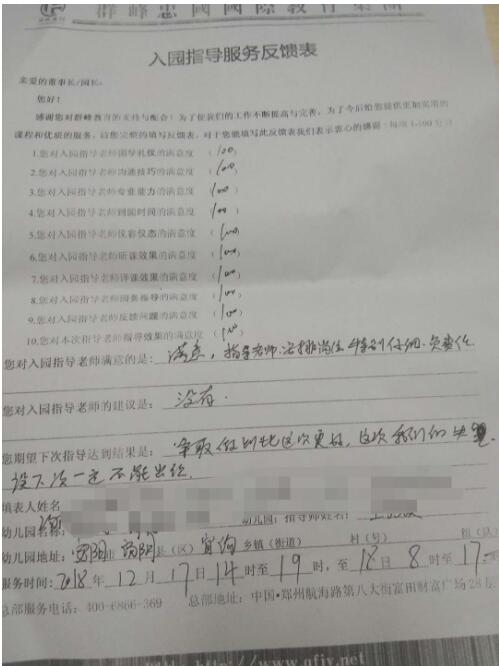 群峰忠國國際教育集團
入园指导服务反馈表
亲爱的董事长/园长:
您好!
感谢您对群峰教育的支持与配合!为了使我们的工作不断提高与完善,为了今后给您提供更加实用的
课程和优质的服务,请您完整的填写反馈表,对于您能填写此反馈表我们表示衷心的感谢!每项1-100分
1.您对入园指导老师园导礼仪的满意度 (100)
2.您对入园指导老师沟通技巧的满意度 (100)
3.您对入园指导老师专业能力的满意度 (100)
4.您对入园指导老师到园时间的满意度 (100)
5.您对入园指导老师仪容仪态的满意度 (100)
6.您对入园指导老师听课效果的满意度 (100)
7.您对入园指导老师评课效果的满意度 (100)
8.您对入园指导老师园务指导的满意度 (100)
9.您对入园指导老师反馈问题的满意度 (100)
10.您对本次指导老师指导效果的满意度 (100)
您对入园指导老师满意的是: 满意,指导老师安排岗位特别仔细.负责任
您对入园指导老师的建议是: 没有.
您期望下次指导达到结果是: 争取做到比这次更好,这次我们的失
误下次一定不能出作.
填表人姓名
幼儿园名称: 幼儿园: 指导师姓名:
幼儿园地址: 南阳市 县(区) 乡镇(街道) 村(号) 组(队)
服务时间: 2018年12月17日14时至19时, 至18日8时至17
总部服务电话: 400-6866-369 总部地址: 中国·郑州航海路第八大街富田财富广场28层